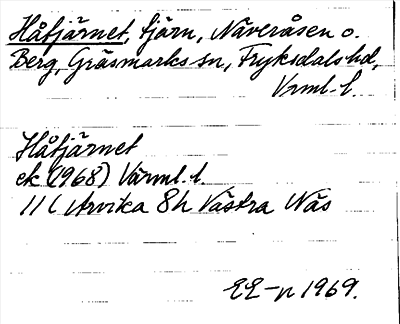 Håtjärnet, tjärn, Näveråsen o.
Berg, Gräsmarks sn, Fryksdals hd,
Vrml. l.
Håtjärnet
ek (1968) Värml. l.
11 C Arvika 8h Västra Näs
EE-n 1969.